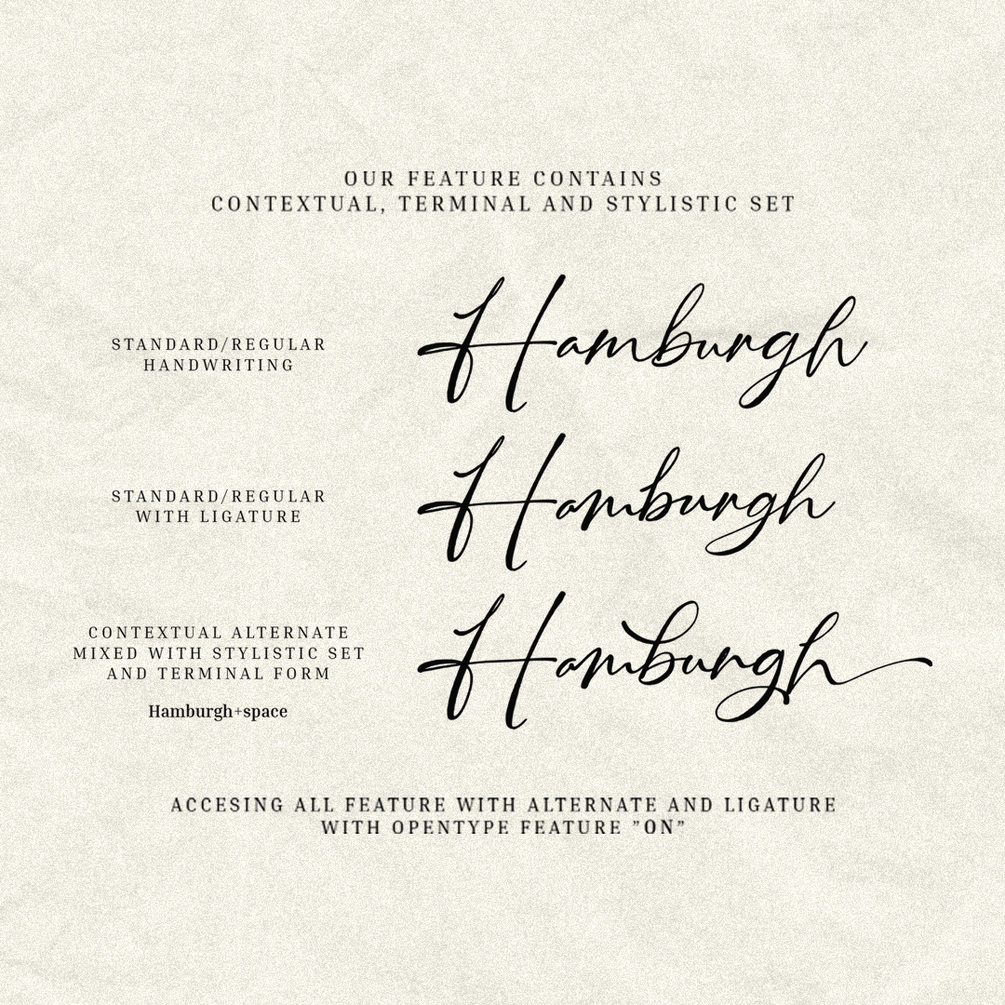 OUR FEATURE CONTAINS
CONTEXTUAL, TERMINAL AND STYLISTIC SET
STANDARD/REGULAR
HANDWRITING
Hamburgh
STANDARD/REGULAR
WITH LIGATURE
Hamburgh
CONTEXTUAL ALTERNATE
MIXED WITH STYLISTIC SET
AND TERMINAL FORM
Hamburgh+space
Hamburgh
ACCESING ALL FEATURE WITH ALTERNATE AND LIGATURE
WITH OPENTYPE FEATURE ”ON”